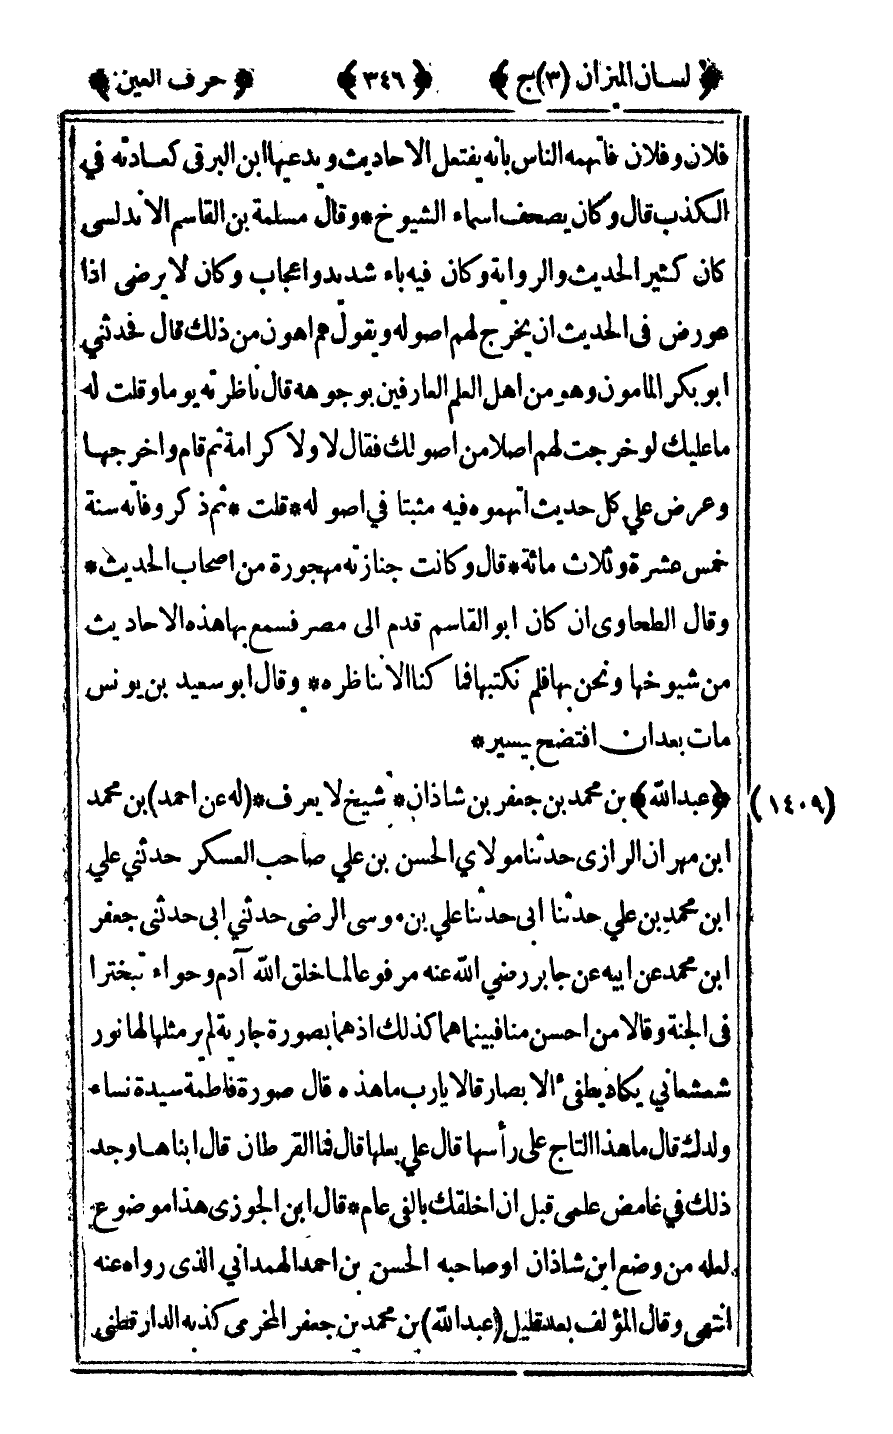 ﴿ لسان الميزان (٣) ج ﴾ ﴿ ٣٤٦ ﴾ ﴿ حرف العين ﴾
فلان وفلان فاتهمه الناس بانه يفتعل الاحاديث ويدعيها ابن البرقى كعادته في
الكذب قال وكان يصحف اسماء الشيوخ * وقال مسلمة بن القاسم الاندلسى
كان كثير الحديث والرواية وكان فيه باء شديد واعجاب وكان لا يرضى اذا
عورض فى الحديث ان يخرج لهم اصوله ويقول هم اهون من ذلك قال فحدثني
ابو بكر المامون وهو من اهل العلم العارفين بوجوهه قال ناظرته يوما وقلت له
ما عليك لو خرجت لهم اصلا من اصولك فقال لا ولا كرامة ثم قام واخرجها
وعرض علي كل حديث اتهموه فيه مثبتا في اصوله * قلت * ثم ذكر وفاته سنة
خمس عشرة وثلاث مائة * قال وكانت جنازته مهجورة من اصحاب الحديث *
وقال الطحاوى ان كان ابو القاسم قدم الى مصر فسمع بها هذه الاحاديث
من شيوخها ونحن بها فلم نكتبها فما كنا الا نناظره * وقال ابو سعيد بن يونس
مات بعد ان افتضح بيسير *
﴿ عبد الله ﴾ بن محمد بن جعفر بن شاذان * شيخ لا يعرف * (له عن احمد) بن محمد (١٤٠٩)
ابن مهران الرازى حدثنا مولاي الحسن بن علي صاحب العسكر حدثني علي
ابن محمد بن علي حدثنا ابى حدثنا علي بن موسى الرضى حدثني ابى حدثنى جعفر
ابن محمد عن ابيه عن جابر رضي الله عنه مرفوعا لما خلق الله آدم وحواء تبخترا
فى الجنة وقالا من احسن منا فبينما هما كذلك اذ هما بصورة جارية لم ير مثلها لها نور
شعشعاني يكاد يطفئ الابصار قالا يارب ما هذه قال صورة فاطمة سيدة نساء
ولدك قال ما هذا التاج على رأسها قال علي بعلها قال فما القرطان قال ابناها وجد
ذلك في غامض علمى قبل ان اخلقك بالفى عام * قال ابن الجوزى هذا موضوع
لعله من وضع ابن شاذان او صاحبه الحسن بن احمد الهمداني الذى رواه عنه
انتهى وقال المؤلف بعد قليل (عبد الله) بن محمد بن جعفر المخرمى كذبه الدارقطنى